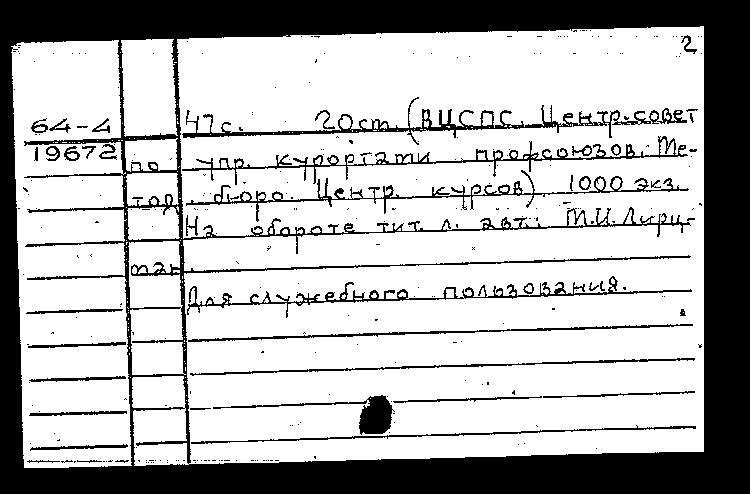 2
64-4
19672
47 с. 20 см. (ВЦСПС. Центр. совет
по упр. курортами профсоюзов. Ме-
тод. бюро Центр. курсов) 1000 экз.
На обороте тит. л. авт.: М.И.
ман.
Для служебного пользования.